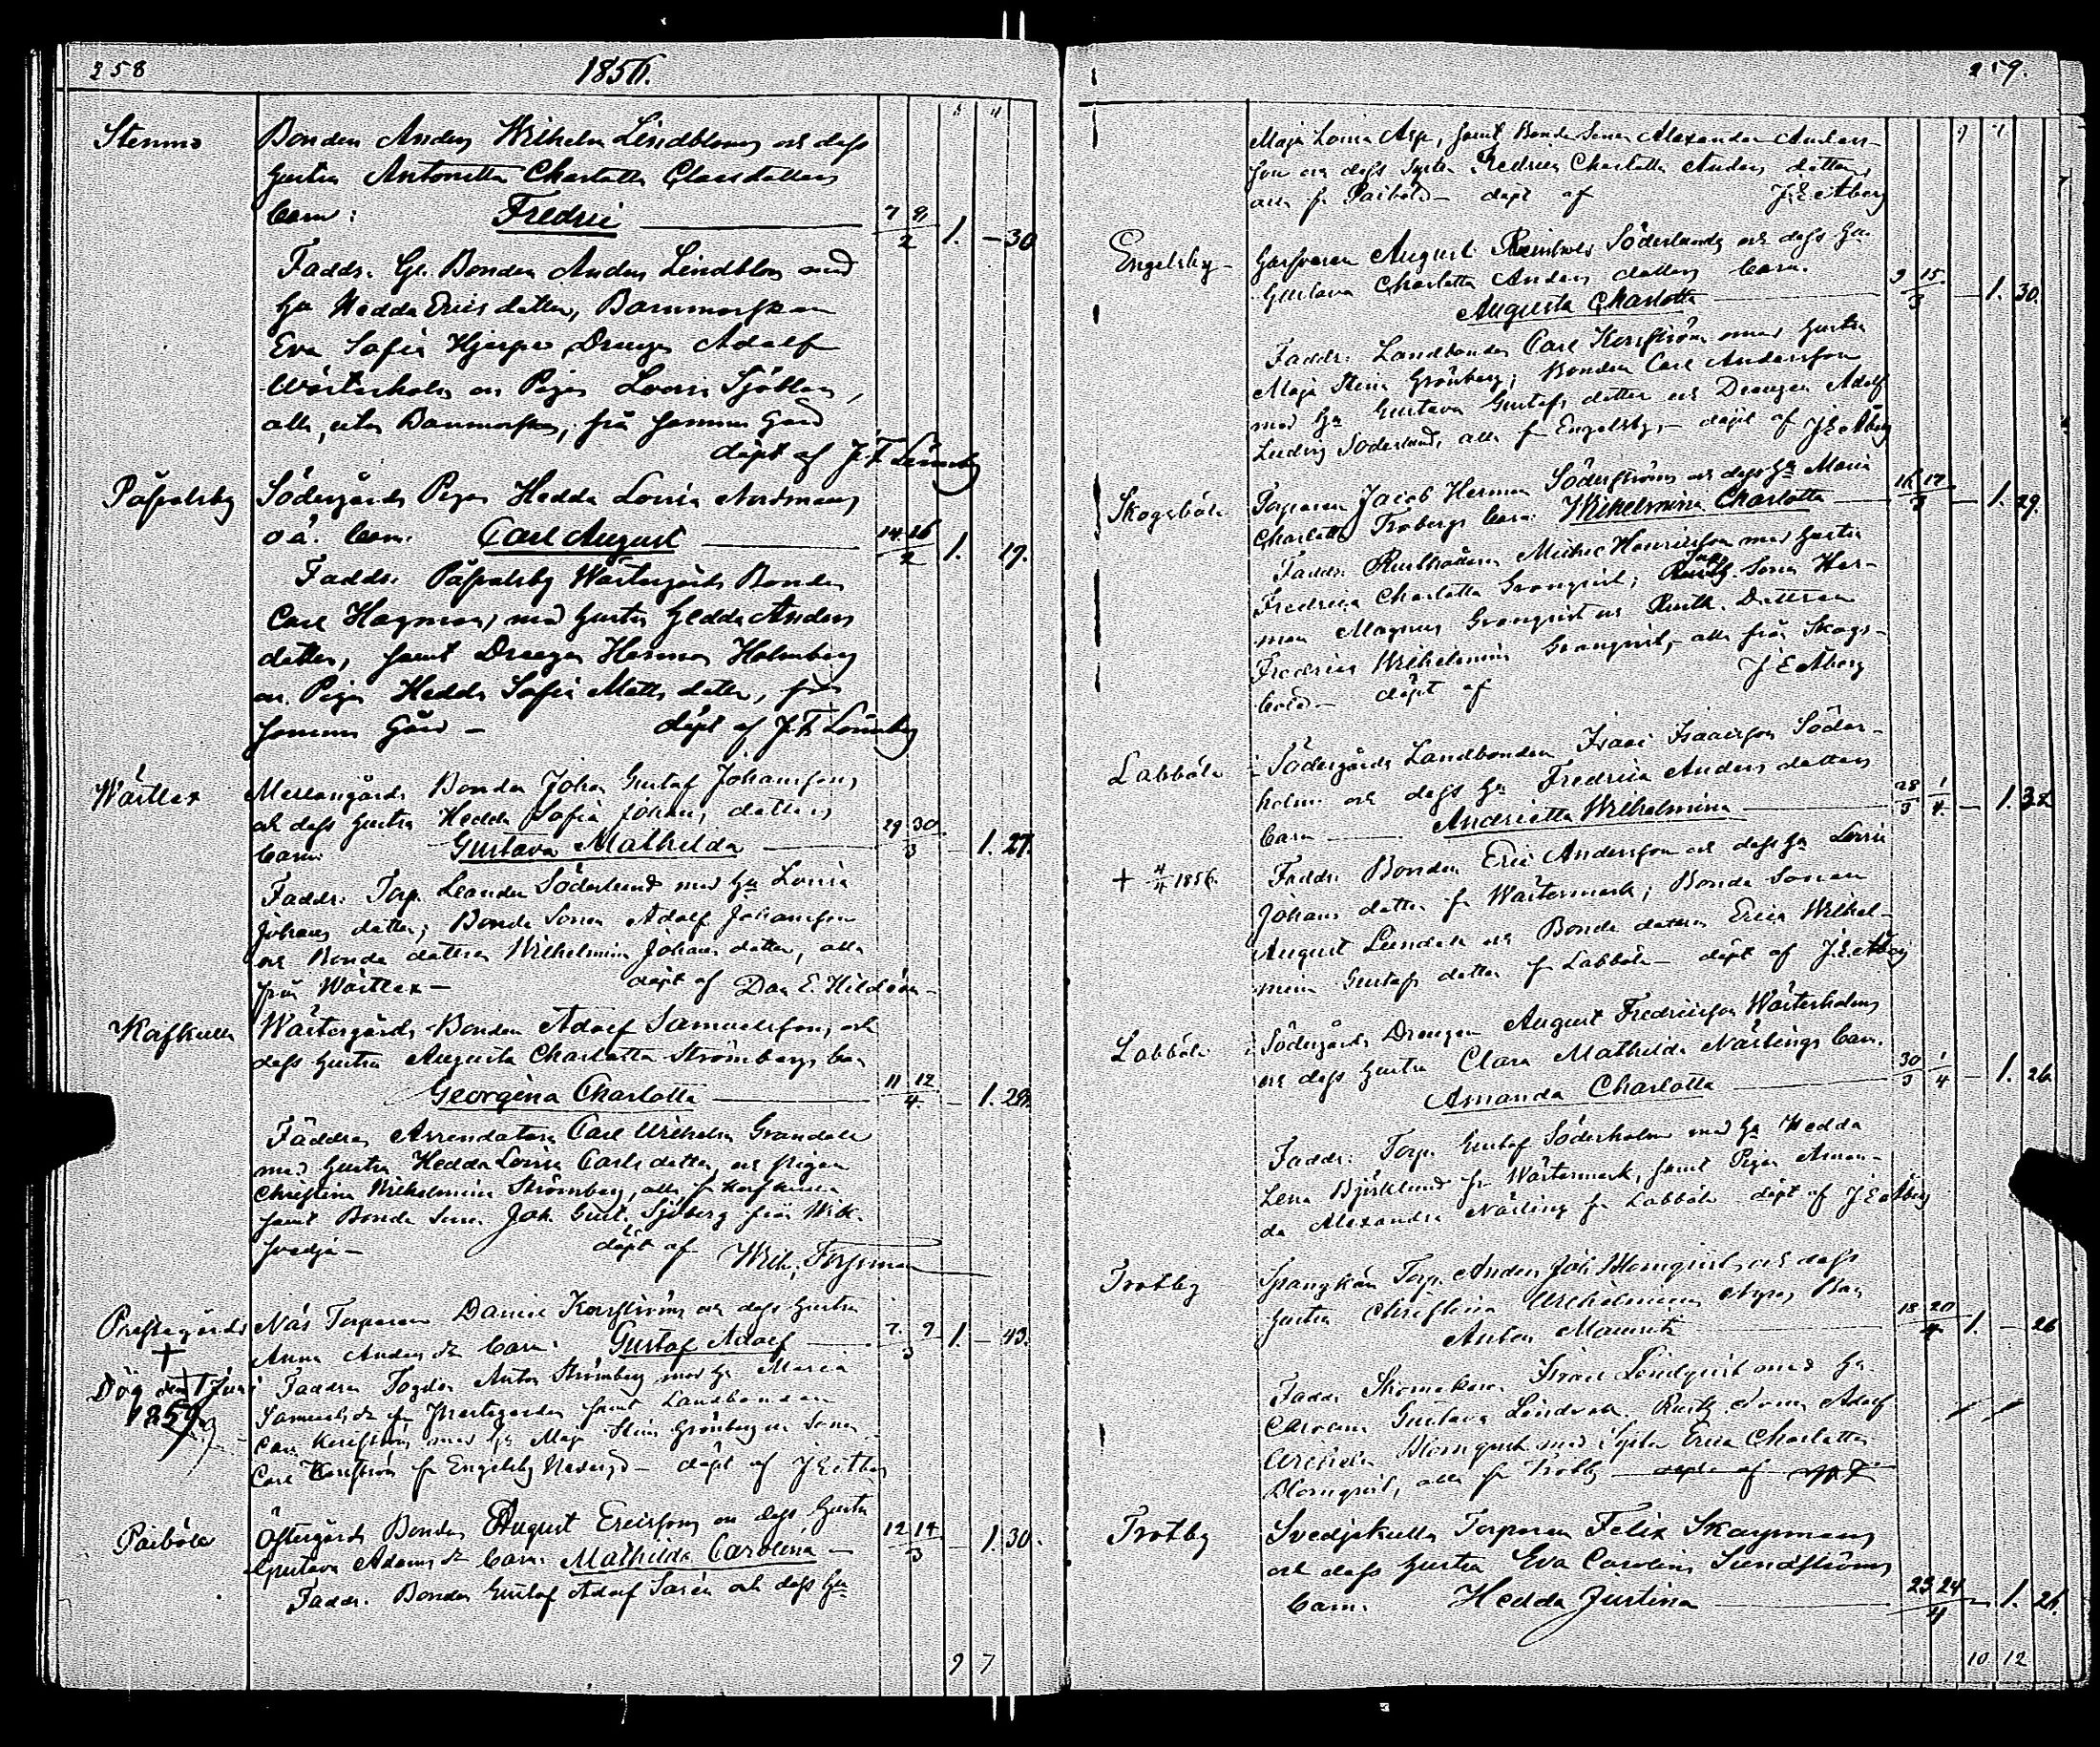 258
1856.
Stenmo
Bonden Anders Wilhelm Lindbloms och dess
hustru Antonetta Charlotta Claesdotters
barn: Fredric 7 9/2 1. — 30
Faddr. Gl. Bonden Anders Lindblom med
hu Hedda Ericsdotter, Barnmorskan
Eva Sofia Hjerpe, Drengen Adolf
Wästerholm och Pigan Lovisa Sjöblom,
alla, utom Barnmorskan, från samma Gård
döpt af J. F. Lönnberg
Påfvalsby
Södergårds Pigan Hedda Lovisa Nordmans
o ä. barn. Carl August 14 16/2 1. 19.
Faddr. Påfvalsby Wästergårds Bonden
Carl Hagman, med hustru Hedda Anders
dotter, samt Drengen Herman Holmberg
och Pigan Hedda Sofia Matts dotter, från
samma Gård — döpt af J. F. Lönnberg
Wästlax
Mellangårds Bonden Johan Gustaf Johanssons
och dess hustru Hedda Sofia Johans dotters
barn Gustava Mathilda 29 30/3 — 1. 27.
Faddr. Torp. Leander Söderlund med hu Lovisa
Johans dotter; Bonde Sonen Adolf Johansson
och Bonde dottren Wilhelmina Johans dotter, alla
från Wästlax — döpt af Dan. E. Hildéen
Kaskulla
Wästergårds Bonden Adolf Samuelssons och
dess hustru Augusta Charlotta Strömbergs barn
Georgina Charlotta 11 12/4. — 1. 29.
Faddrar Arrendatorn Carl Wilhelm Grandell
med hustru Hedda Lovisa Carls dotter, och pigan
Christina Wilhelmina Strömberg, alla fr Kaskulla
samt Bonde Sonen Joh. Gust. Sjöberg från Wik-
svedja — döpt af Wilh. Forsman
Prestegårds
Näs Torparen Daniel Korsströms och dess hustru
Anna Anders dr barn: Gustaf Adolf 7. 9/3 1. — 43.
+
Dög den 1 Juni
1859
Faddrar Anton Strömberg med hu Maria
Samuels dr fr Prestegården samt Landbonden
Carl Korsström med hu Maja Stina Grönberg och Sonen
Carl Korsström fr Engelsby Nedergd — döpt af J. E. Åberg
Paiböle
Östergårds Bonden August Ericssons och dess hustru
Gustava Adams dr barn. Mathilda Carolina — 12 14/3 — 1. 30.
Faddr. Bonden Gustaf Adolf Sarén och dess hu
9 7
259.
Maja Lovisa Asp, samt Bonde Sonen Alexander Anders-
son och dess syster Fredrica Charlotta Anders dotter,
alla fr Paiböle — döpt af J. E. Åberg
Engelsby —
August Reinholds Söderlunds och dess hu
Gustava Charlotta Anders dotters barn.
Augusta Charlotta 9 15/3 — 1. 30.
Faddr. Landbonden Carl Korsström med hustru
Maja Stina Grönberg; Bonden Carl Andersson
med hu Gustava Gustafs dotter och Drengen Adolf
Ludvig Söderlund, alla fr Engelsby, — döpt af J. E. Åberg
Skogsböle
Torparen Jacob Herman Söderströms och dess hu Maria
Charlotta Frobergs barn: Wilhelmina Charlotta 16 17/3 — 1. 29.
Faddr. Rusthållaren Michel Henricsson med hustru
Fredrica Charlotta Granqvist; Rusth. Sonen Her-
man Magnus Granqvist och Rusth. Dottren
Fredrica Wilhelmina Granqvist, — alla från Skogs-
böle. — döpt af J. E. Åberg
Labböle
Södergårds Landbonden Isaac Isaacsson Söder-
holms och dess hu Fredrica Anders dotters
barn Andrietta Wilhelmina 28/3 1/4. — 1. 32.
+ 4/4 1856.
Faddr. Bonden Eric Andersson och dess hu Lovisa
Johans dotter fr Wästermark; Bonde Sonen
August Lindell och Bonde dottren Erica Wilhel-
mina Gustafs dotter fr Labböle — döpt af J. E. Åberg
Labböle
Södergårds Drengen August Fredricsson Wästerholms
och dess hustru Clara Mathilda Närlings barn.
Amanda Charlotta 30/3 1/4 — 1. 26.
Faddr. Torp. Gustaf Söderholm med hu Hedda
Lena Björklund fr Wästermark, samt Pigan Aman-
da Alexandra Närling fr Labböle döpt af J. E. Åberg
Trotby
Spangkärr Torp. Anders Joh. Blomqvists och dess
hustru Christina Wilhelmina Barn
Anton Mauritz 18 20/4. 1. — 26
Faddr. Skomakaren Israel Lindqvist med hu
Carolina Gustava Lindroth Rusth. Sonen Adolf
Wilhelm Blomqvist med Syster Erica Charlotta
Blomqvist, alla fr Trotby — döpt af
Trotby
Svedjekulla Torparen Felix Skaysmans
och dess hustru Eva Carolina Sundströms
barn. Hedda Justina 23 24/4 — 1. 26.
10 12